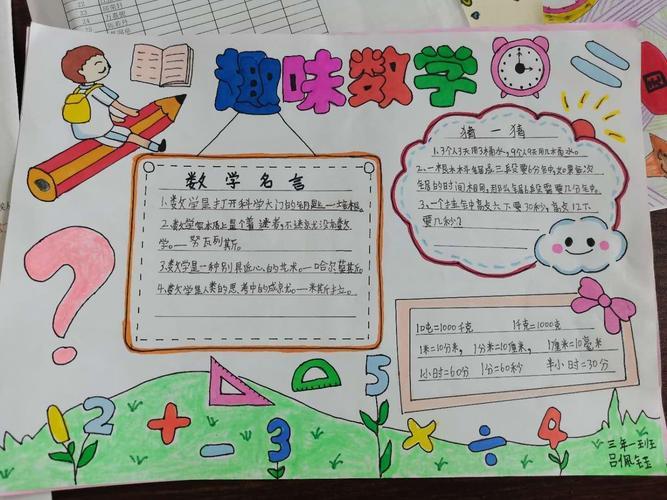 趣味数学
数学名言
1、数学是打开科学大门的钥匙。—培根。
2、数学家本质上是个着迷者,不迷就没有数
学。—努瓦列斯。
3、数学是一种别具匠心的艺术。—哈尔莫斯。
4、数学是人类的思考中的成就。
猜一猜
1、3个人3天用3桶水,9个人9天用几桶水。
2、一根木头锯成三段要6分钟,如果每次
锯的时间相同,那么锯6段要几分钟。
3、一个挂钟敲六下要30秒,敲12下
要几秒?
10吨=1000千克 1千克=1000克
1米=10分米, 1分米=10厘米, 1厘米=10毫米
1小时=60分 1分=60秒 半小时=30分
1 2 + - 3 5 × ÷ 4
三年一班
吕佩钰